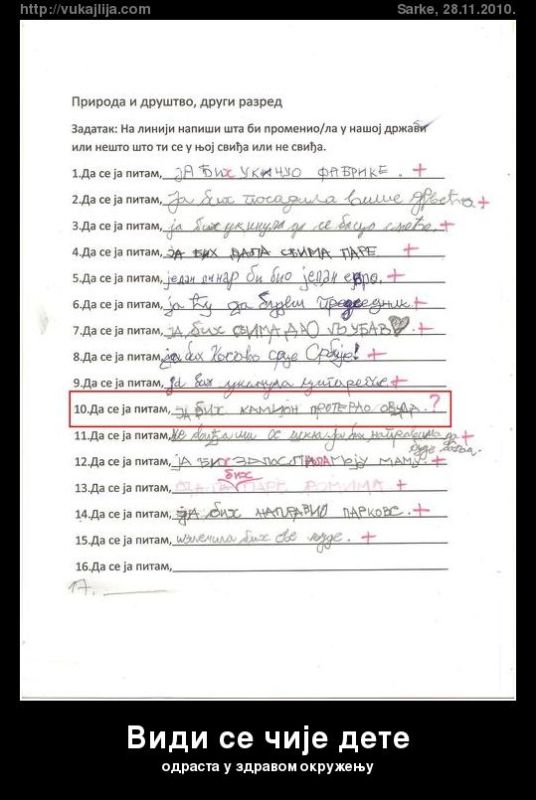 http://vukajlija.com
Sarke, 28.11.2010.
Природа и друштво, други разред
Задатак: На линији напиши шта би променио/ла у нашој држави
или нешто што ти се у њој свиђа или не свиђа.
1.Да се ја питам, ЈА БИХ УКИНУО ФАБРИКЕ. +
2.Да се ја питам, Ја бих посадила више дрвећа +
3.Да се ја питам, ја бих укинула да се баца смеће. +
4.Да се ја питам, ЈА БИХ ДАЛА СВИМА ПАРЕ. +
5.Да се ја питам, један динар би био један евро. +
6.Да се ја питам, ја ћу да будем председник +
7.Да се ја питам, ЈА БИХ СВИМА ДАО ЉУБАВ +
8.Да се ја питам, ја бих Косово Србије! +
9.Да се ја питам, ја бих укинула цигарете +
10.Да се ја питам, ЈА БИХ КАМИЈОН ПРОТЕРАО ОВУДА. ?
11.Да се ја питам, не ми се ја бих направила да +
буде боља.
12.Да се ја питам, ЈА БИХ МОЈУ МАМУ. +
бих
13.Да се ја питам, ПАРЕ РОМИМА. +
14.Да се ја питам, ЈА БИХ НАПРАВИО ПАРКОВЕ. +
15.Да се ја питам, изменила бих све људе. +
16.Да се ја питам,
17.
Види се чије дете
одраста у здравом окружењу